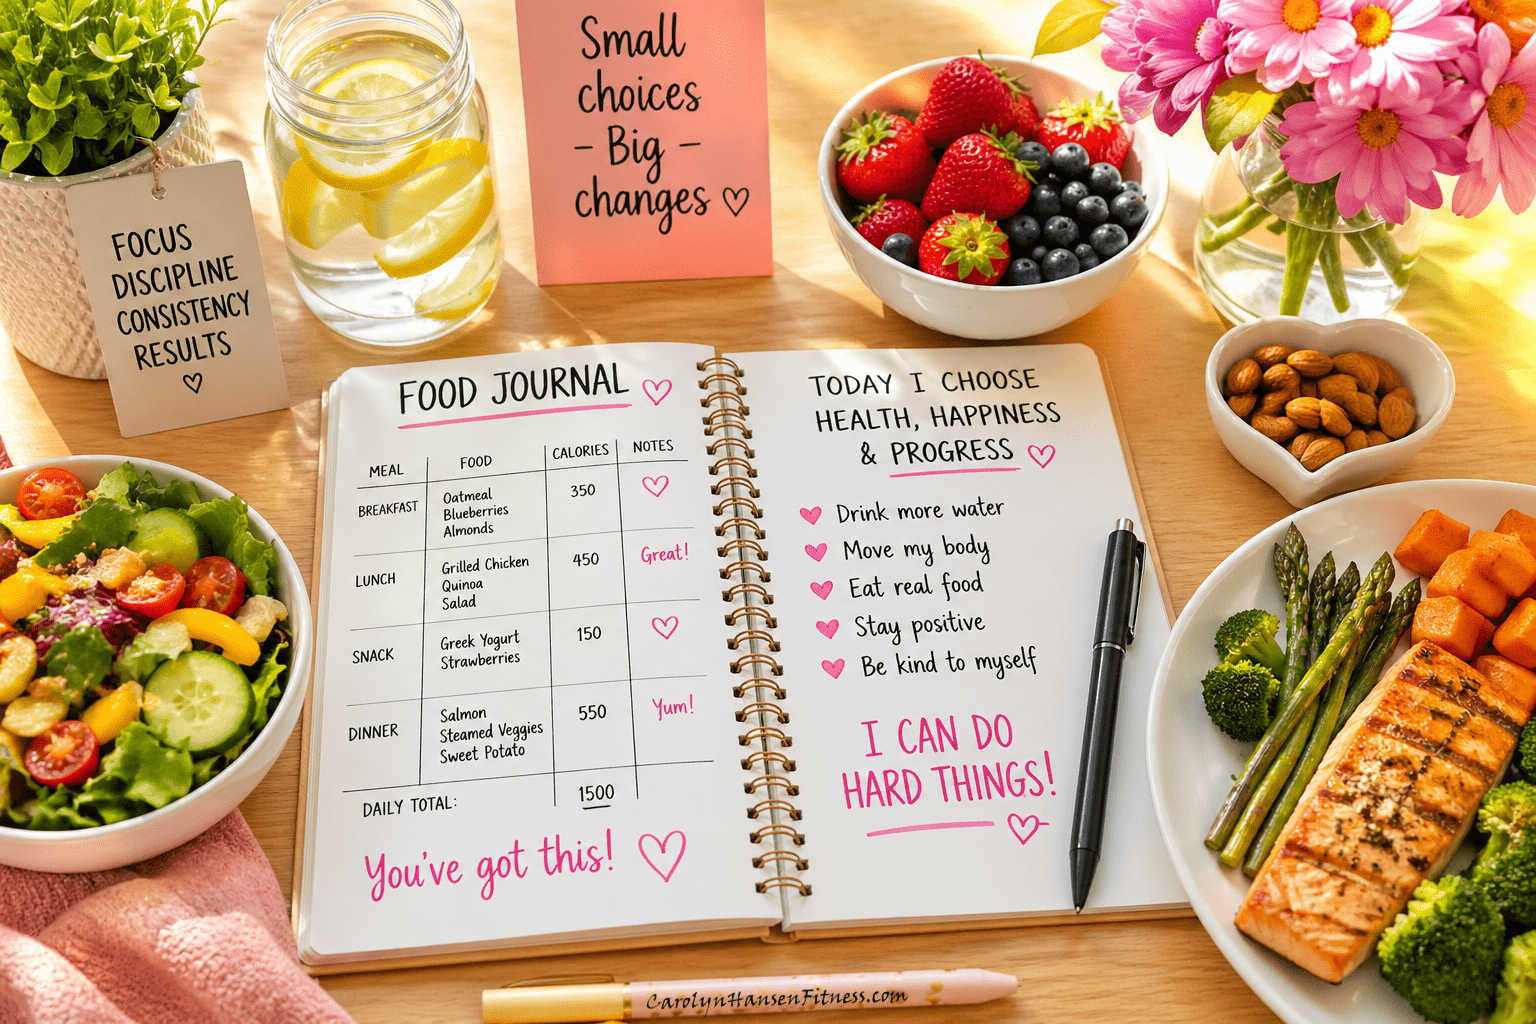 Small
choices
- Big -
changes ♡
FOCUS
DISCIPLINE
CONSISTENCY
RESULTS
♡
FOOD JOURNAL ♡
MEAL FOOD CALORIES NOTES
BREAKFAST Oatmeal 350 ♡
Blueberries
Almonds
LUNCH Grilled Chicken 450 Great!
Quinoa
Salad
SNACK Greek Yogurt 150 ♡
Strawberries
DINNER Salmon 550 Yum!
Steamed Veggies
Sweet Potato
DAILY TOTAL: 1500
You've got this! ♡
TODAY I CHOOSE
HEALTH, HAPPINESS
& PROGRESS ♡
♥ Drink more water
♥ Move my body
♥ Eat real food
♥ Stay positive
♥ Be kind to myself
I CAN DO
HARD THINGS!
♡
CarolynHansenFitness.com